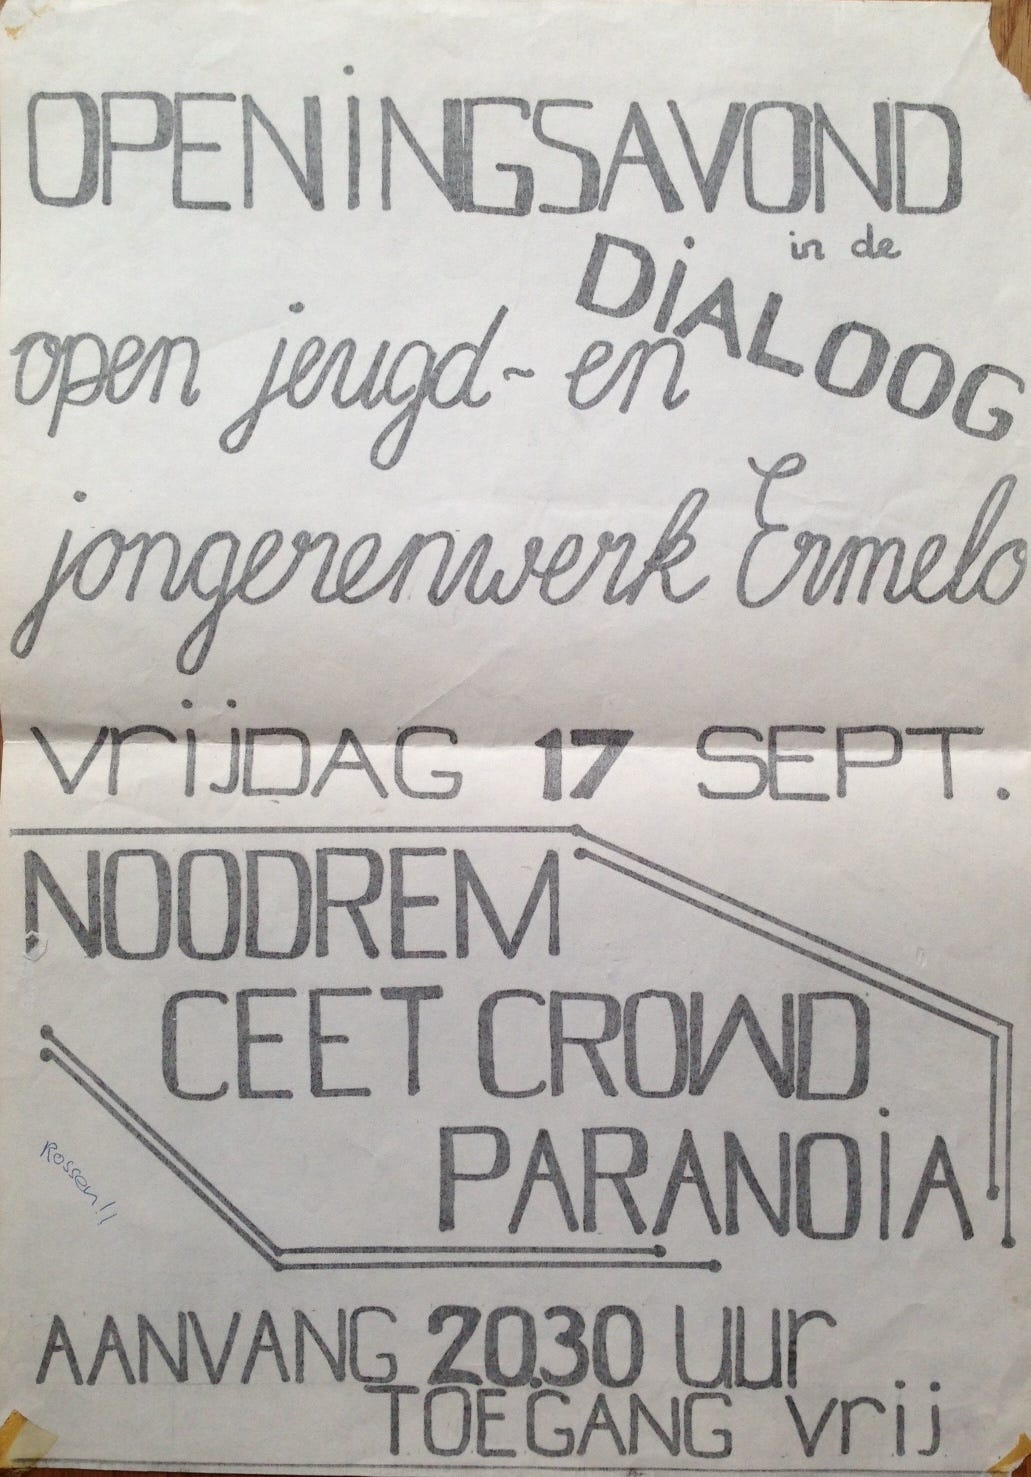 OPENiNGSAVOND
in de
DiALOOG
open jeugd- en
jongerenwerk Ermelo
VrijDAG 17 SEPT.
NOODREM
CEET CROWD
PARANOiA
Rossen!!
AANVANG 20.30 uur
TOEGANG vrij